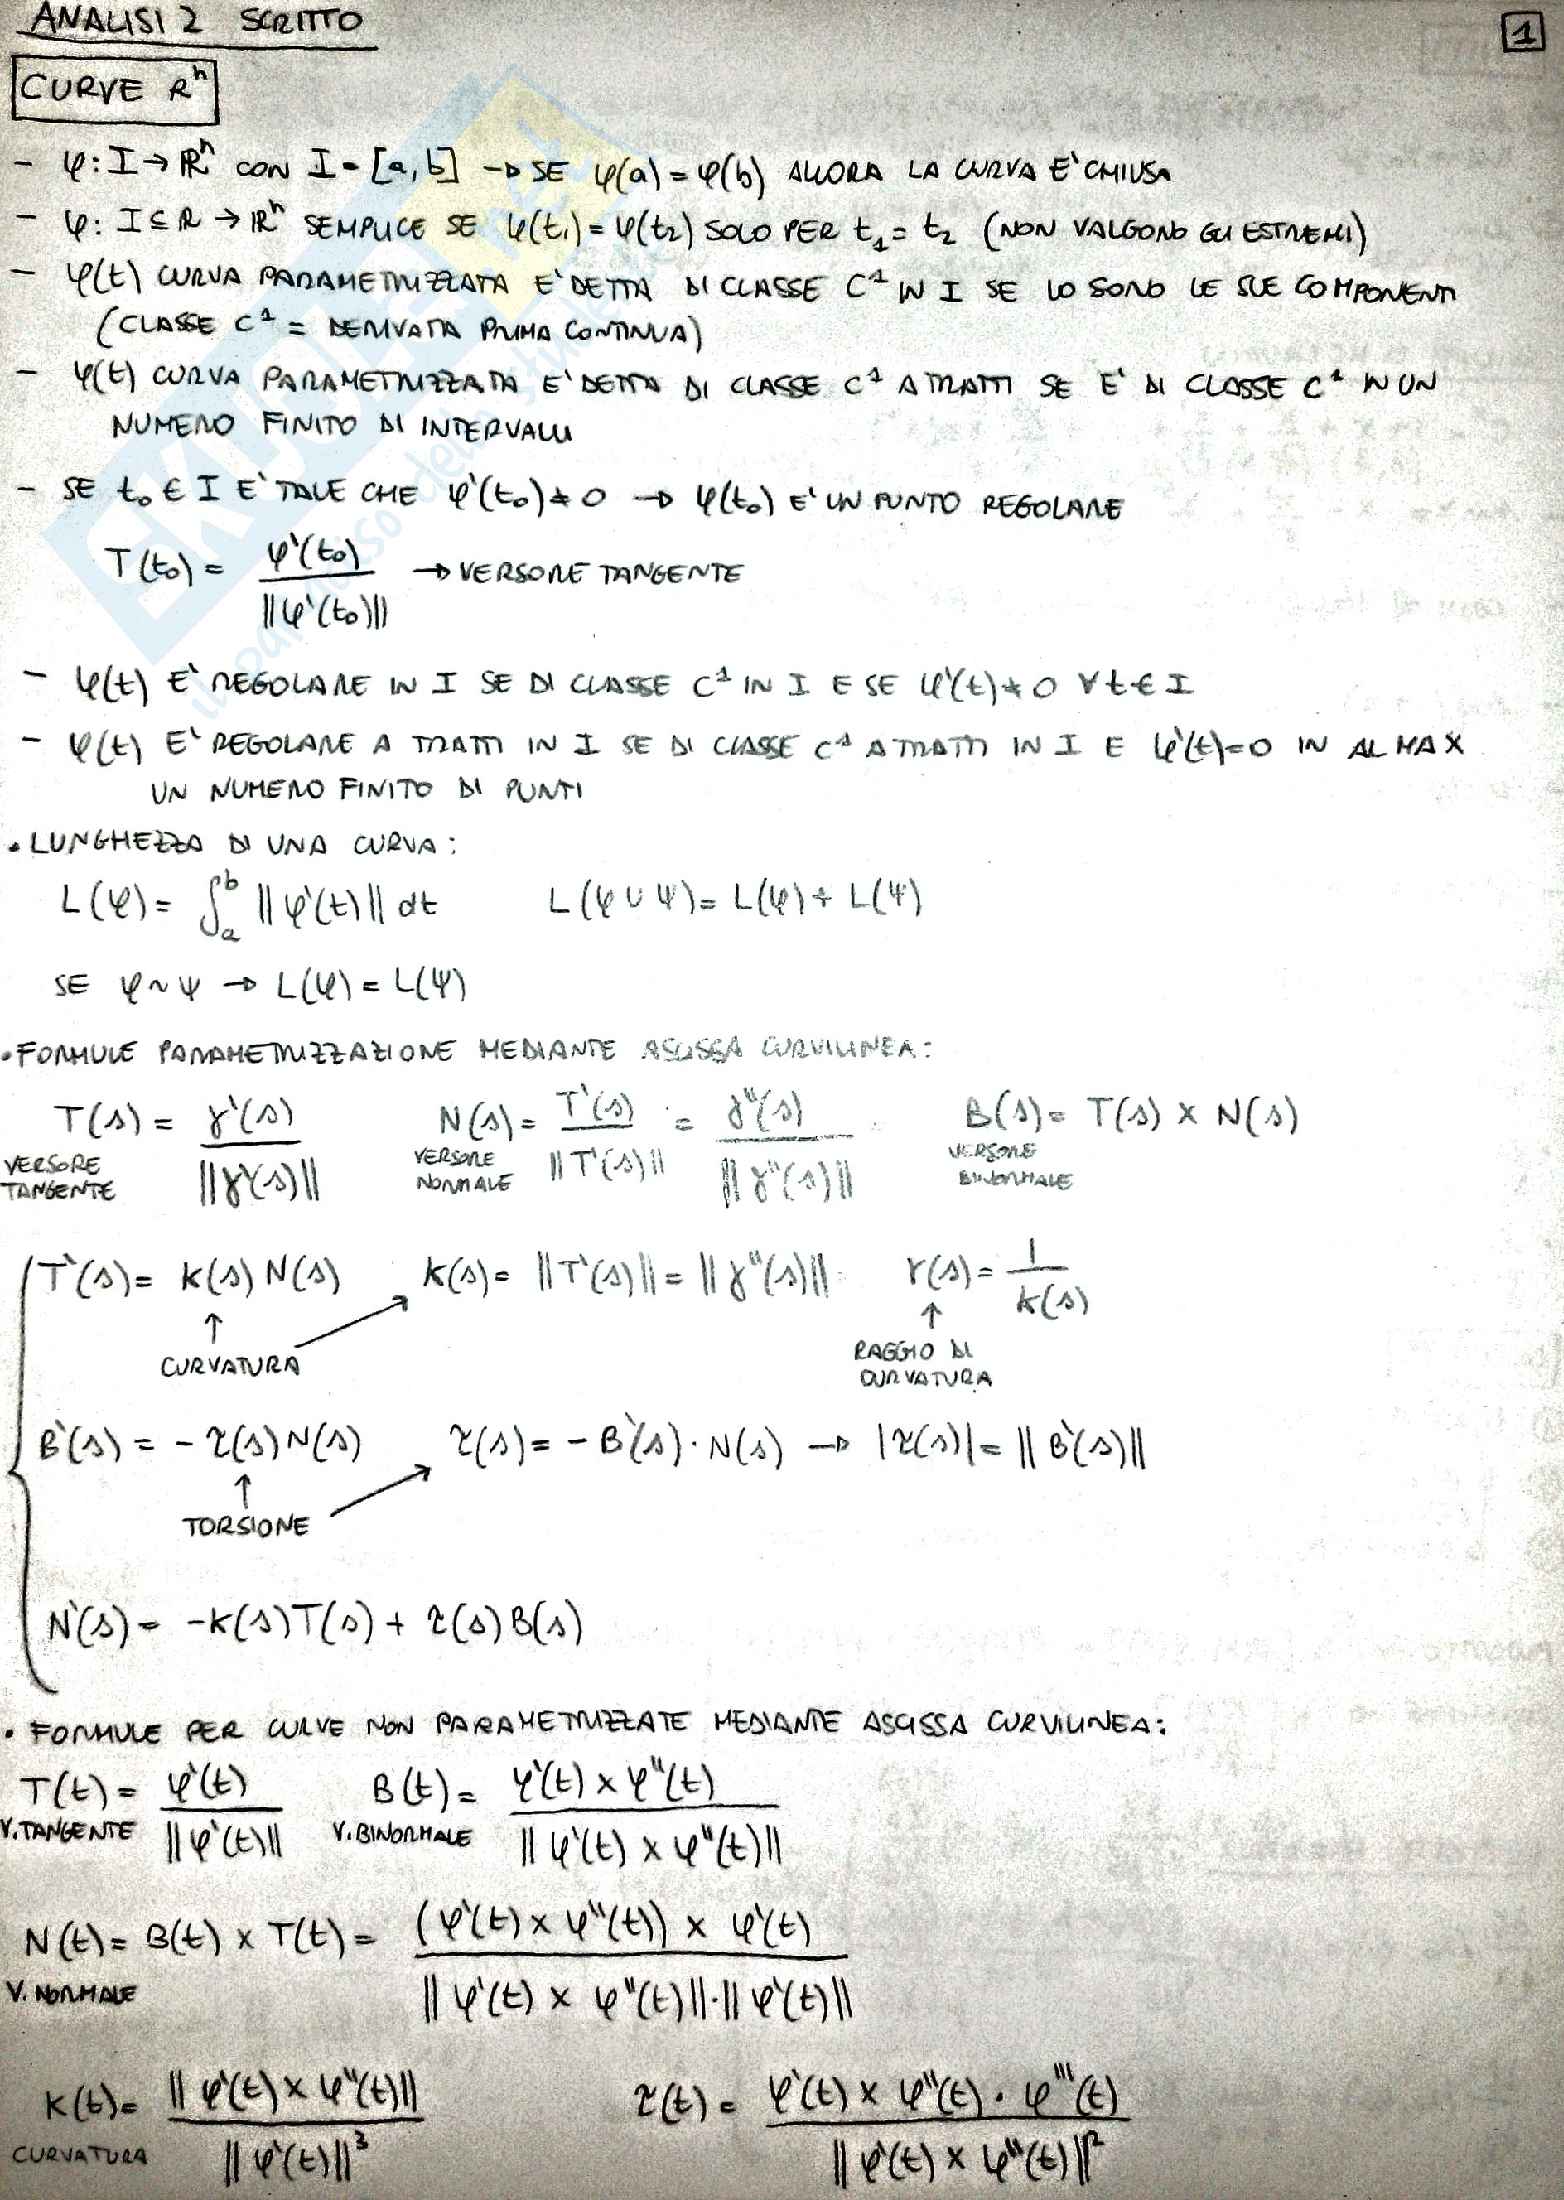 ANALISI 2 SCRITTO
1
CURVE Rⁿ
- φ: I → ℝⁿ CON I = [a, b] → SE φ(a) = φ(b) ALLORA LA CURVA E' CHIUSA
- φ: I ⊆ ℝ → ℝⁿ SEMPLICE SE φ(t₁) = φ(t₂) SOLO PER t₁ = t₂ (NON VALGONO GLI ESTREMI)
- φ(t) CURVA PARAMETRIZZATA E' DETTA DI CLASSE C¹ IN I SE LO SONO LE SUE COMPONENTI
(CLASSE C¹ = DERIVATA PRIMA CONTINUA)
- φ(t) CURVA PARAMETRIZZATA E' DETTA DI CLASSE C¹ A TRATTI SE E' DI CLASSE C¹ IN UN
NUMERO FINITO DI INTERVALLI
- SE t₀ ∈ I E' TALE CHE φ'(t₀) ≠ 0 → φ(t₀) E' UN PUNTO REGOLARE
T(t₀) = φ'(t₀) / ||φ'(t₀)|| → VERSORE TANGENTE
- φ(t) E' REGOLARE IN I SE DI CLASSE C¹ IN I E SE φ'(t) ≠ 0 ∀ t ∈ I
- φ(t) E' REGOLARE A TRATTI IN I SE DI CLASSE C¹ A TRATTI IN I E φ'(t) = 0 IN AL MAX
UN NUMERO FINITO DI PUNTI
• LUNGHEZZA DI UNA CURVA:
L(φ) = ∫ₐᵇ ||φ'(t)|| dt   L(φ ∪ ψ) = L(φ) + L(ψ)
SE φ ~ ψ → L(φ) = L(ψ)
• FORMULE PARAMETRIZZAZIONE MEDIANTE ASCISSA CURVILINEA:
T(s) = γ'(s) / ||γ'(s)||   N(s) = T'(s) / ||T'(s)|| = γ''(s) / ||γ''(s)||   B(s) = T(s) × N(s)
VERSORE TANGENTE   VERSORE NORMALE   VERSORE BINORMALE
T'(s) = K(s) N(s)   K(s) = ||T'(s)|| = ||γ''(s)||   r(s) = 1 / K(s)
CURVATURA   RAGGIO DI CURVATURA
B'(s) = - τ(s) N(s)   τ(s) = - B'(s) · N(s) → |τ(s)| = ||B'(s)||
TORSIONE
N'(s) = -K(s) T(s) + τ(s) B(s)
• FORMULE PER CURVE NON PARAMETRIZZATE MEDIANTE ASCISSA CURVILINEA:
T(t) = φ'(t) / ||φ'(t)||   B(t) = φ'(t) × φ''(t) / ||φ'(t) × φ''(t)||
V. TANGENTE   V. BINORMALE
N(t) = B(t) × T(t) = (φ'(t) × φ''(t)) × φ'(t) / ||φ'(t) × φ''(t)|| · ||φ'(t)||
V. NORMALE
K(t) = ||φ'(t) × φ''(t)|| / ||φ'(t)||³   τ(t) = φ'(t) × φ''(t) · φ'''(t) / ||φ'(t) × φ''(t)||²
CURVATURA